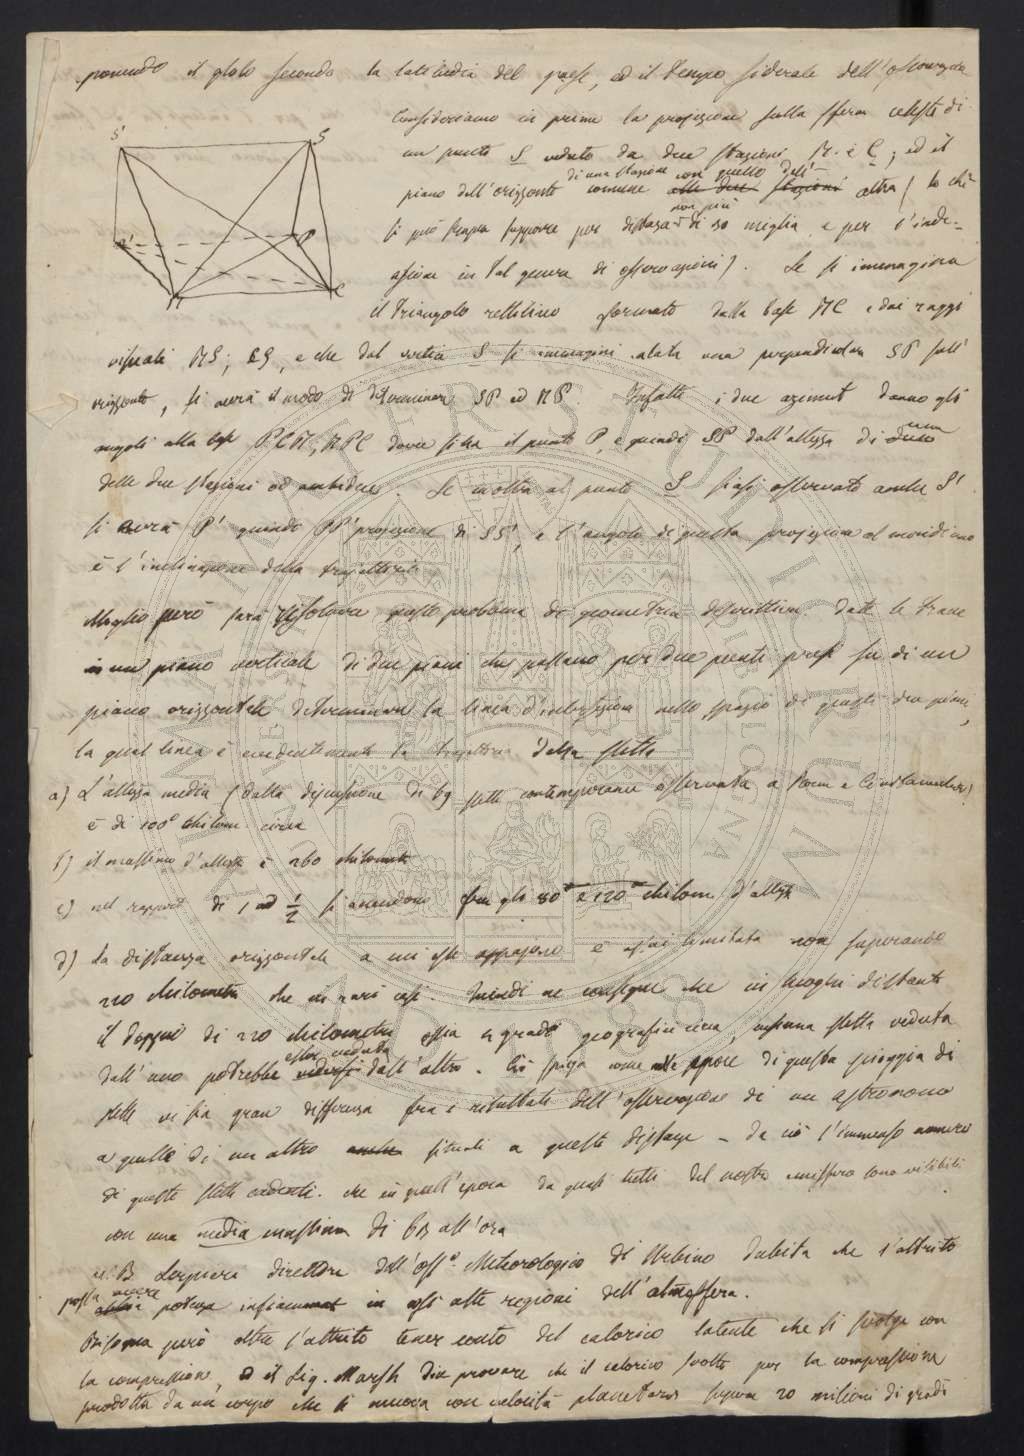 ponendo il globo secondo la latitudine del paese, ed il tempo siderale dell'osservazione
Consideriamo in prima la projezione sulla sfera celeste di
un punto S veduto da due stazioni M. e C; ed il
di una stazione con quello dell'
piano dell'orizzonte comune alle due stazioni altra (lo chè
non più
si può sempre supporre per distanza di 30 miglia e per l'inde-
azione in tal genere di osservazioni). Se si immagina
il triangolo rettilineo formato dalla base MC e dai raggi
S' S
P' P
M C
visuali MS; CS, e che dal vertice S si immagini calata una perpendicolare SP sull'
orizzonte, si avrà il modo di determinare SP ed MP. Infatti i due azimut danno gli
angoli alla base PCM, MPC dove si ha il punto P, e quindi SP dall'altezza di una
delle due stazioni od ambedue. Se inoltre al punto S siasi osservato anche S'
si avrà P' quindi PP' projezione di SS', e l'angolo di questa projezione al meridiano
è l'inclinazione della trajettoria.
Meglio però sarà risolvere questo problema di geometria descrittiva. Date le tracce
in un piano verticale di due piani che passano per due punti presi su di un
piano orizzontale, determinare la linea d'intersezione nello spazio di questi due piani,
la qual linea è evidentemente la trajettoria della stella
a) L'altezza media (dalla discussione di 69 stelle contemporanee osservata a Roma e Civitavecchia)
è di 100 chilom. circa
b) il massimo d'altezza è 260 chilometri
c) nel rapporto di 1 ad 1/2 si accendono fra gli 80 e 120 chilom. d'altezza
d) La distanza orizzontale a cui esse appajono è assai limitata non superando
220 chilometri che in rari casi. Quindi ne consegue che in luoghi distanti
il doppio di 220 chilometri ossia 4 gradi geografici circa, nessuna stella veduta
esser veduta
dall'uno potrebbe vedersi dall'altro. Ciò spiega come nelle epoche di questa pioggia di
stelle vi sia gran differenza fra i risultati dell'osservazione di un astronomo
a quelli di un altro anche situati a queste distanze - da ciò l'immenso numero
di queste stelle cadenti. che in quell'epoca da quasi tutti del nostro emisfero sono visibili
con una media massima di 63 all'ora
Il P. Serpieri direttore dell'Oss.o Meteorologico di Urbino dubita che l'attrito
possa avere
abbia potenza infiammat in quelle alte regioni dell'atmosfera.
Bisogna però oltre l'attrito tener conto del calorico latente che si svolge con
la compressione, ed il Sig. Marsh dice provare che il calorico svolto per la compressione
prodotta da un corpo che si muova con velocità planetaria supera 20 milioni di gradi